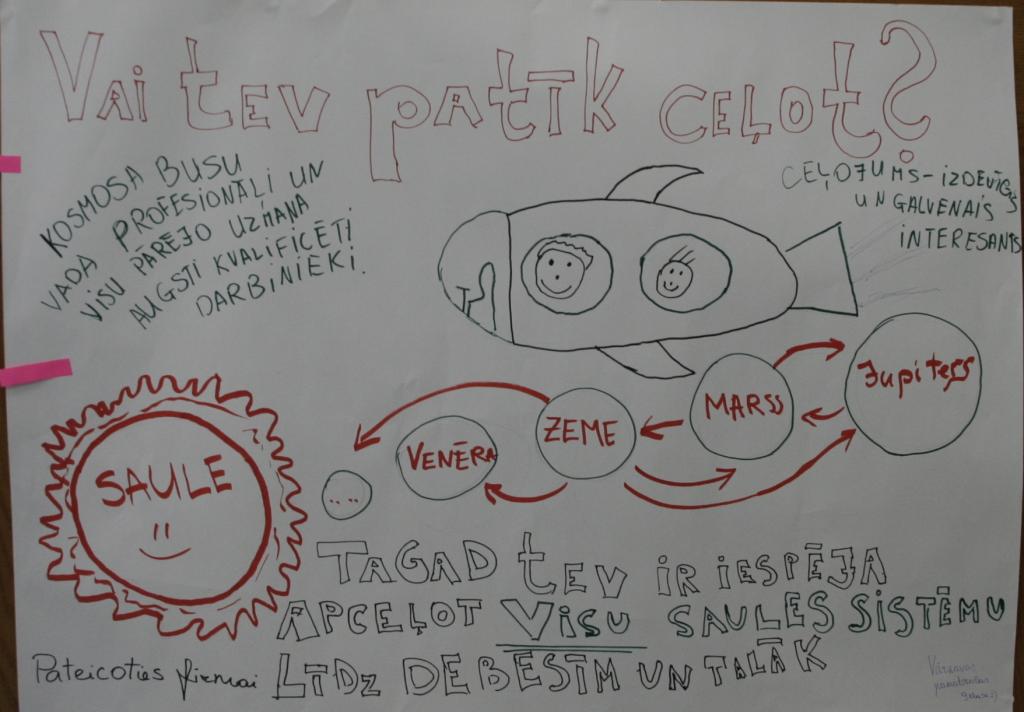 Vai tev patīk ceļot?
KOSMOSA BUSU
VADA PROFESIONĀĻI UN
VISU PĀRĒJO UZMANA
AUGSTI KVALIFICĒTI
DARBINIEKI.
CEĻOJUMS - IZDEVĪGS
UN GALVENAIS
INTERESANTS
SAULE
....
VENĒRA
ZEME
MARSS
Jupiters
TAGAD tEV iR iESPĒJA
APCEĻOT Visu SAULES SiSTĒMU
Pateicoties firmai LĪDz DEBESĪM UN TALĀK